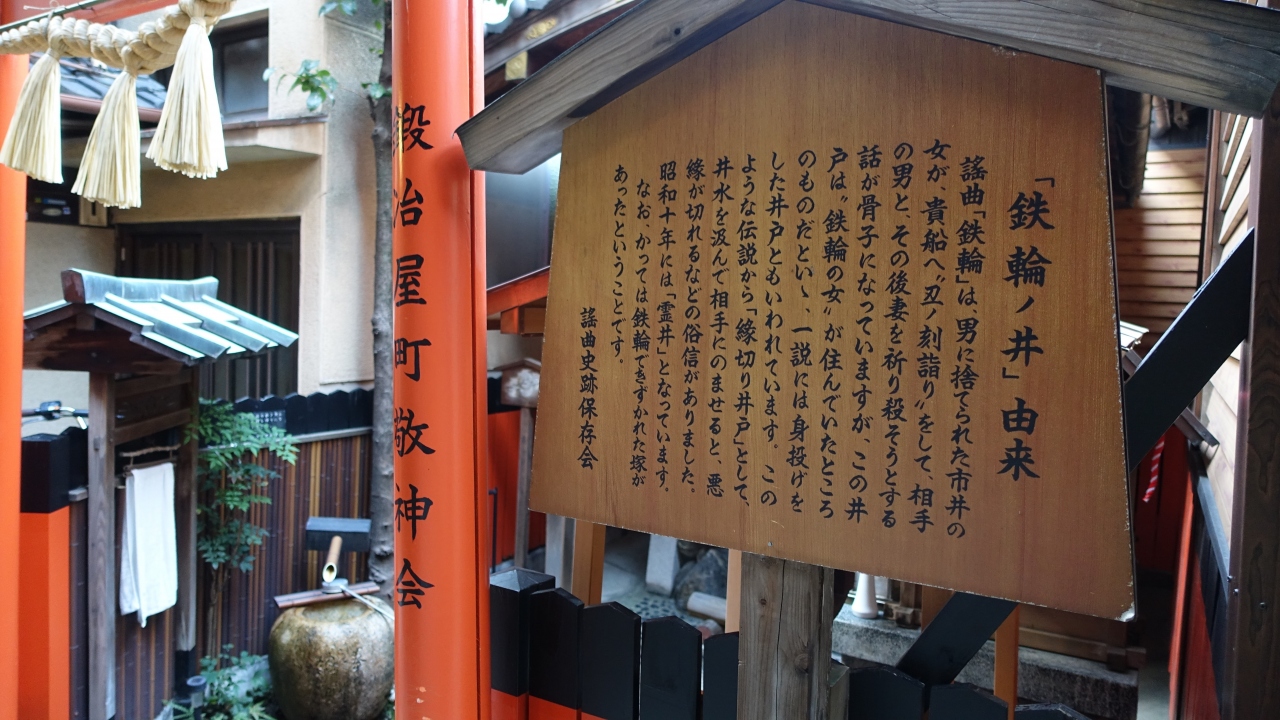 「鉄輪ノ井」由来
謡曲「鉄輪」は、男に捨てられた市井の
女が、貴船へ〝丑ノ刻詣り〟をして、相手
の男と、その後妻を祈り殺そうとする
話が骨子になっていますが、この井
戸は〝鉄輪の女〟が住んでいたところ
のものだといゝ、一説には身投げを
した井戸ともいわれています。この
ような伝説から「縁切り井戸」として、
井水を汲んで相手にのませると、悪
縁が切れるなどの俗信がありました。
昭和十年には「霊井」となっています。
なお、かっては鉄輪できずかれた塚が
あったということです。
謡曲史跡保存会
鍛冶屋町敬神会